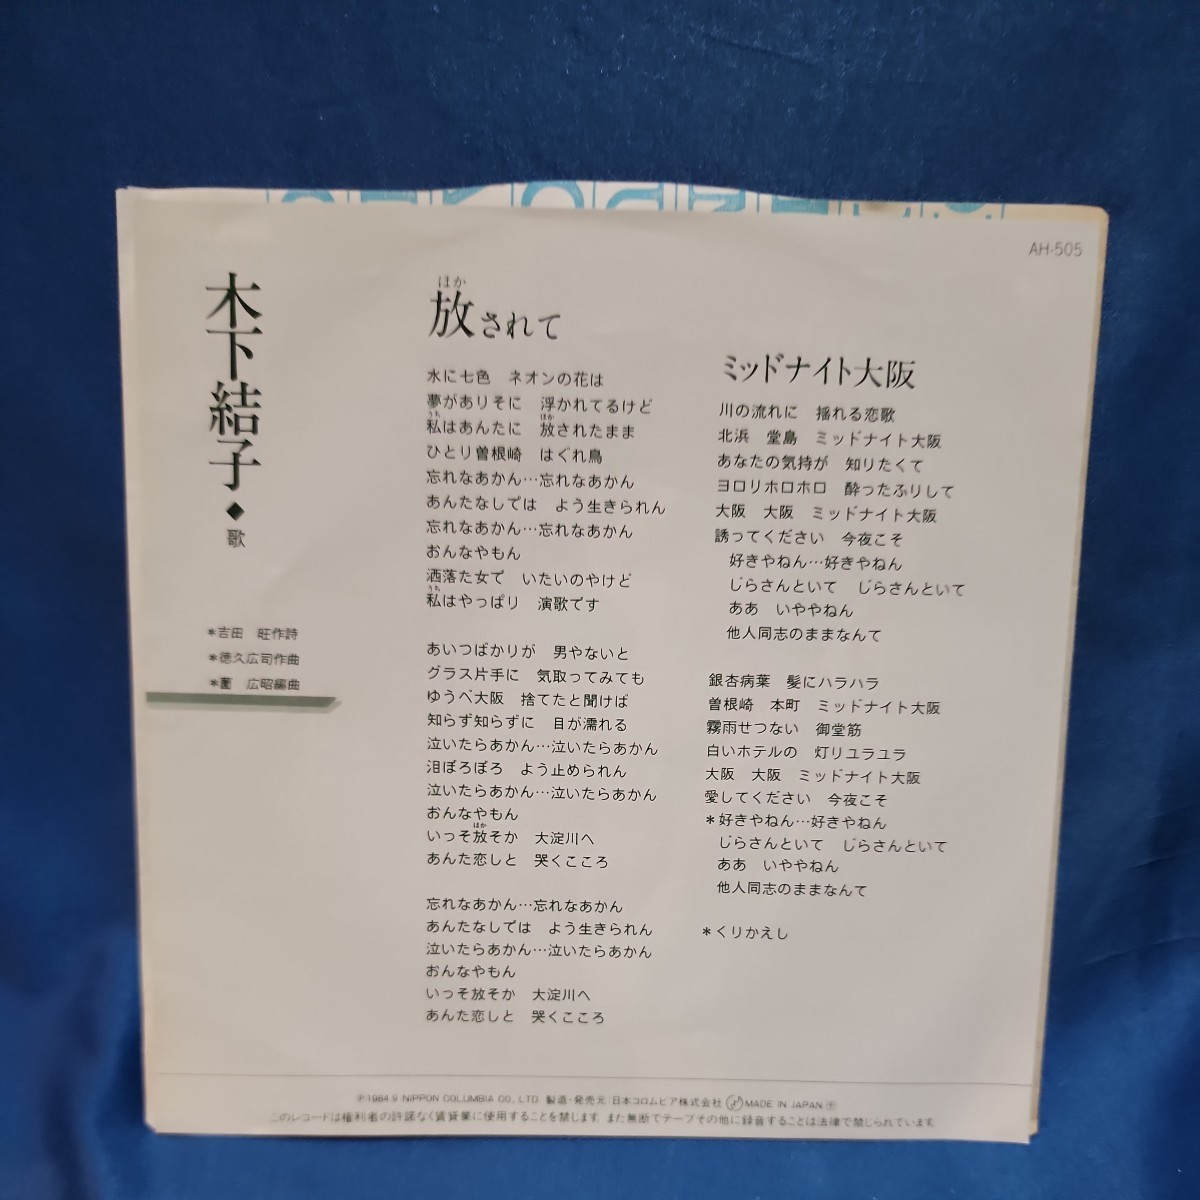 AH-505
木下結子◆歌
*吉田 旺作詩
*徳久広司作曲
*薗 広昭編曲
ほか
放されて
水に七色 ネオンの花は
夢がありそに 浮かれてるけど
うち ほか
私はあんたに 放されたまま
ひとり曽根崎 はぐれ鳥
忘れなあかん…忘れなあかん
あんたなしでは よう生きられん
忘れなあかん…忘れなあかん
おんなやもん
洒落た女で いたいのやけど
うち
私はやっぱり 演歌です
あいつばかりが 男やないと
グラス片手に 気取ってみても
ゆうべ大阪 捨てたと聞けば
知らず知らずに 目が濡れる
泣いたらあかん…泣いたらあかん
泪ぼろぼろ よう止められん
泣いたらあかん…泣いたらあかん
おんなやもん
ほか
いっそ放そか 大淀川へ
あんた恋しと 哭くこころ
忘れなあかん…忘れなあかん
あんたなしでは よう生きられん
泣いたらあかん…泣いたらあかん
おんなやもん
いっそ放そか 大淀川へ
あんた恋しと 哭くこころ
ミッドナイト大阪
川の流れに 揺れる恋歌
北浜 堂島 ミッドナイト大阪
あなたの気持が 知りたくて
ヨロリホロホロ 酔ったふりして
大阪 大阪 ミッドナイト大阪
誘ってください 今夜こそ
好きやねん…好きやねん
じらさんといて じらさんといて
ああ いややねん
他人同志のままなんて
銀杏病葉 髪にハラハラ
曽根崎 本町 ミッドナイト大阪
霧雨せつない 御堂筋
白いホテルの 灯りユラユラ
大阪 大阪 ミッドナイト大阪
愛してください 今夜こそ
*好きやねん…好きやねん
じらさんといて じらさんといて
ああ いややねん
他人同志のままなんて
*くりかえし
Ⓟ1984.9 NIPPON COLUMBIA CO., LTD. 製造・発売元/日本コロムビア株式会社 MADE IN JAPAN
このレコードは権利者の許諾なく賃貸業に使用することを禁じます。また無断でテープその他に録音することは法律で禁じられています。